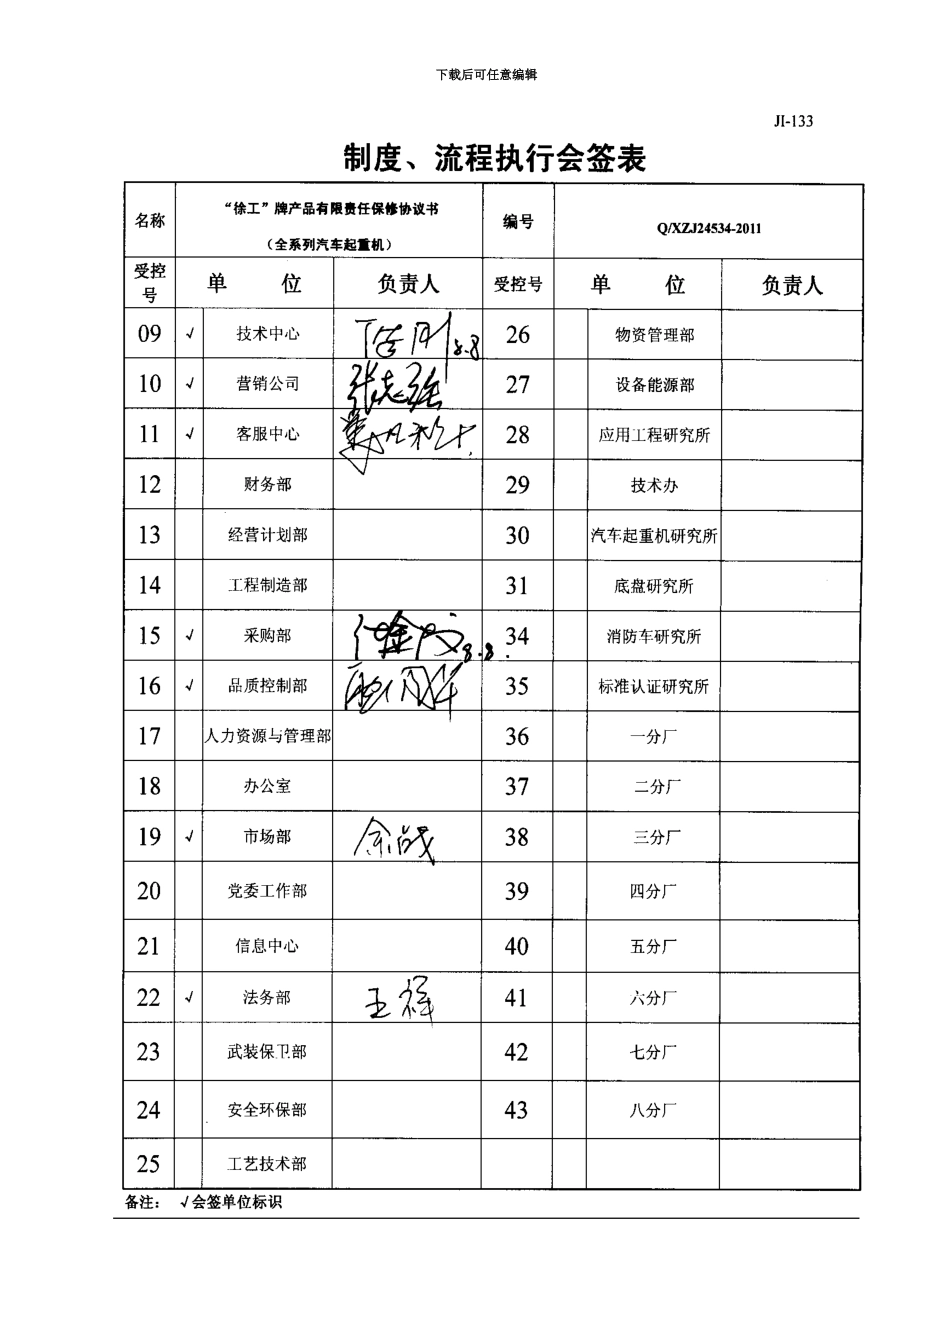 下载后可任意编辑
JI-133
制度、流程执行会签表
名称 “徐工”牌产品有限责任保修协议书 编号 Q/XZJ24534-2011
（全系列汽车起重机）
受控号 单 位 负责人 受控号 单 位 负责人
09 √ 技术中心 8.8 26 物资管理部
10 √ 营销公司 张志强 27 设备能源部
11 √ 客服中心 28 应用工程研究所
12 财务部 29 技术办
13 经营计划部 30 汽车起重机研究所
14 工程制造部 31 底盘研究所
15 √ 采购部 8.8. 34 消防车研究所
16 √ 品质控制部 35 标准认证研究所
17 人力资源与管理部 36 一分厂
18 办公室 37 二分厂
19 √ 市场部 38 三分厂
20 党委工作部 39 四分厂
21 信息中心 40 五分厂
22 √ 法务部 王祥 41 六分厂
23 武装保卫部 42 七分厂
24 安全环保部 43 八分厂
25 工艺技术部
备注： √会签单位标识